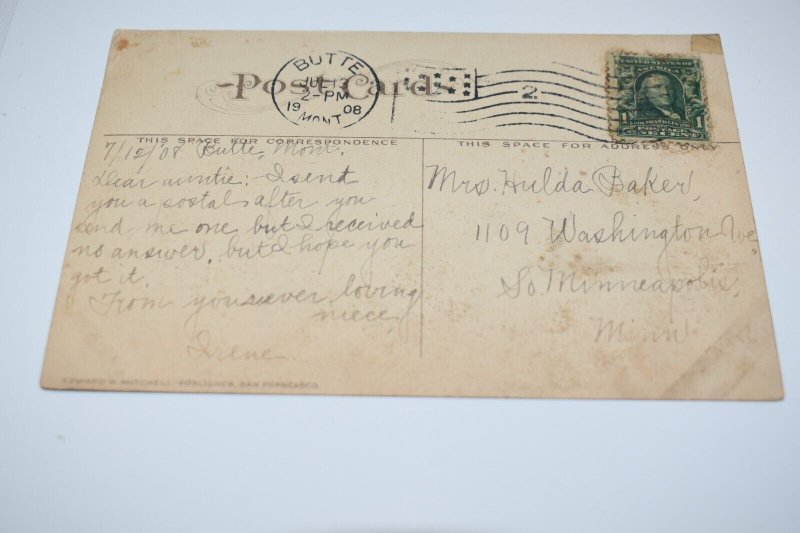 BUTTE
JUL 13
2-PM
19 08
MONT.
Post Cards
2
1 1
THIS SPACE FOR CORRESPONDENCE
THIS SPACE FOR ADDRESS ONLY
7/12/08 Butte, Mont.
Dear auntie: I send
you a postal after you
send me one but I received
no answer. but I hope you
got it.
From your ever loving
niece,
Irene.
Mrs. Hulda Baker,
1109 Washington Ave
So. Minneapolis,
Minn
EDWARD H MITCHELL, PUBLISHER, SAN FRANCISCO